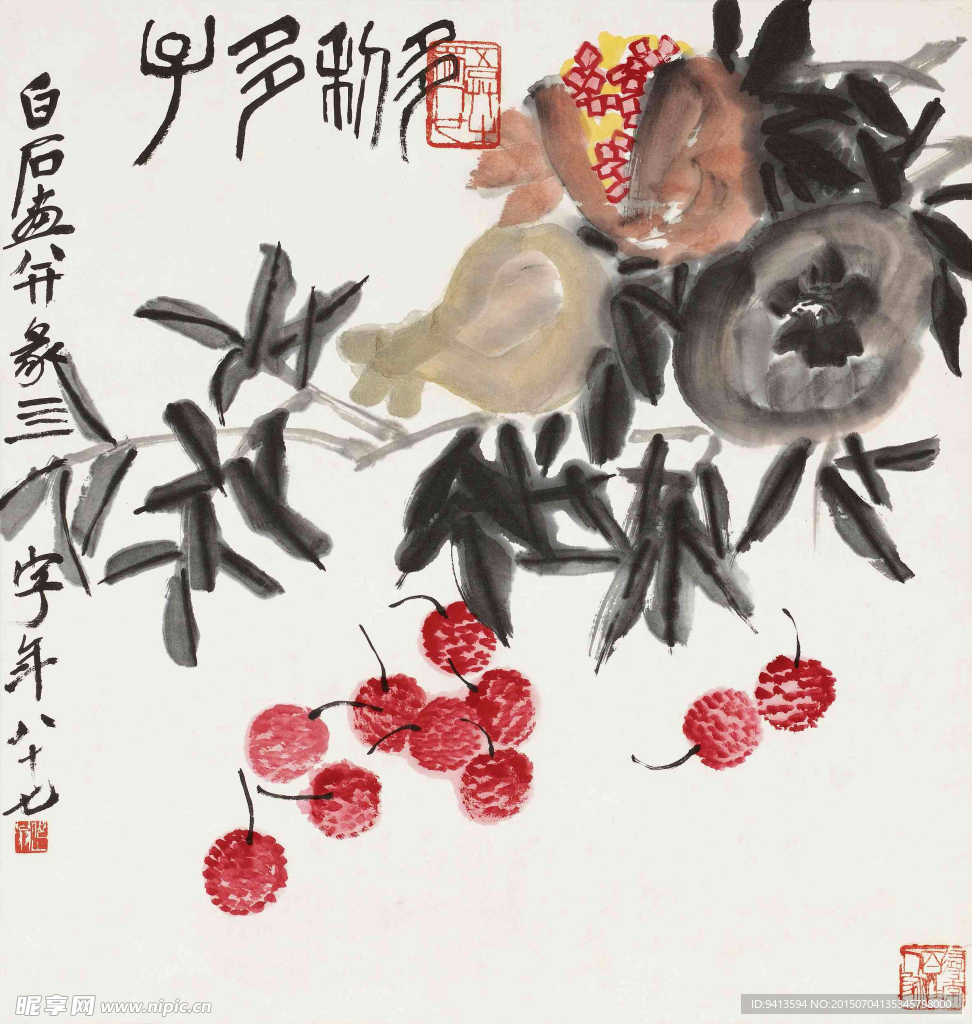 多利多子
白石畫并篆亖字年八十七
昵享网 www.nipic.cn
ID:9413594 NO:20150704135345798000